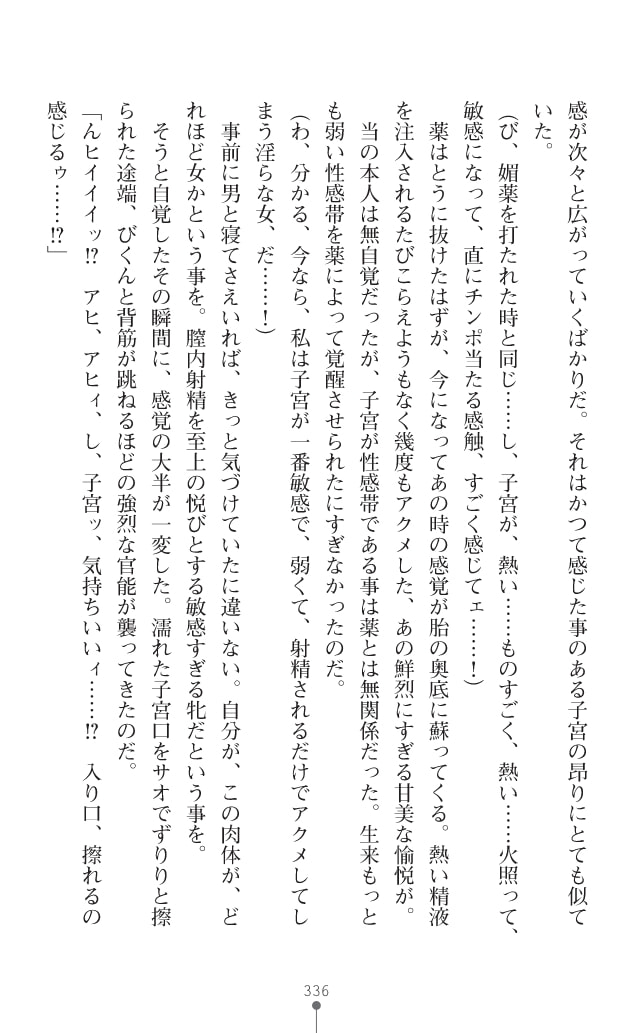 感が次々と広がっていくばかりだ。それはかつて感じた事のある子宮の昂りにとても似て
いた。
（び、媚薬を打たれた時と同じ……し、子宮が、熱い……ものすごく、熱い……火照って、
敏感になって、直にチンポ当たる感触、すごく感じてェ……！）
薬はとうに抜けたはずが、今になってあの時の感覚が胎の奥底に蘇ってくる。熱い精液
を注入されるたびこらえようもなく幾度もアクメした、あの鮮烈にすぎる甘美な愉悦が。
当の本人は無自覚だったが、子宮が性感帯である事は薬とは無関係だった。生来もっと
も弱い性感帯を薬によって覚醒させられたにすぎなかったのだ。
（わ、分かる、今なら、私は子宮が一番敏感で、弱くて、射精されるだけでアクメしてし
まう淫らな女、だ……！）
事前に男と寝てさえいれば、きっと気づけていたに違いない。自分が、この肉体が、ど
れほど女かという事を。膣内射精を至上の悦びとする敏感すぎる牝だという事を。
そうと自覚したその瞬間に、感覚の大半が一変した。濡れた子宮口をサオでずりりと擦
られた途端、びくんと背筋が跳ねるほどの強烈な官能が襲ってきたのだ。
「んヒイイイッ!?　アヒ、アヒィ、し、子宮ッ、気持ちいいィ……!?　入り口、擦れるの
感じるゥ……!?」
336